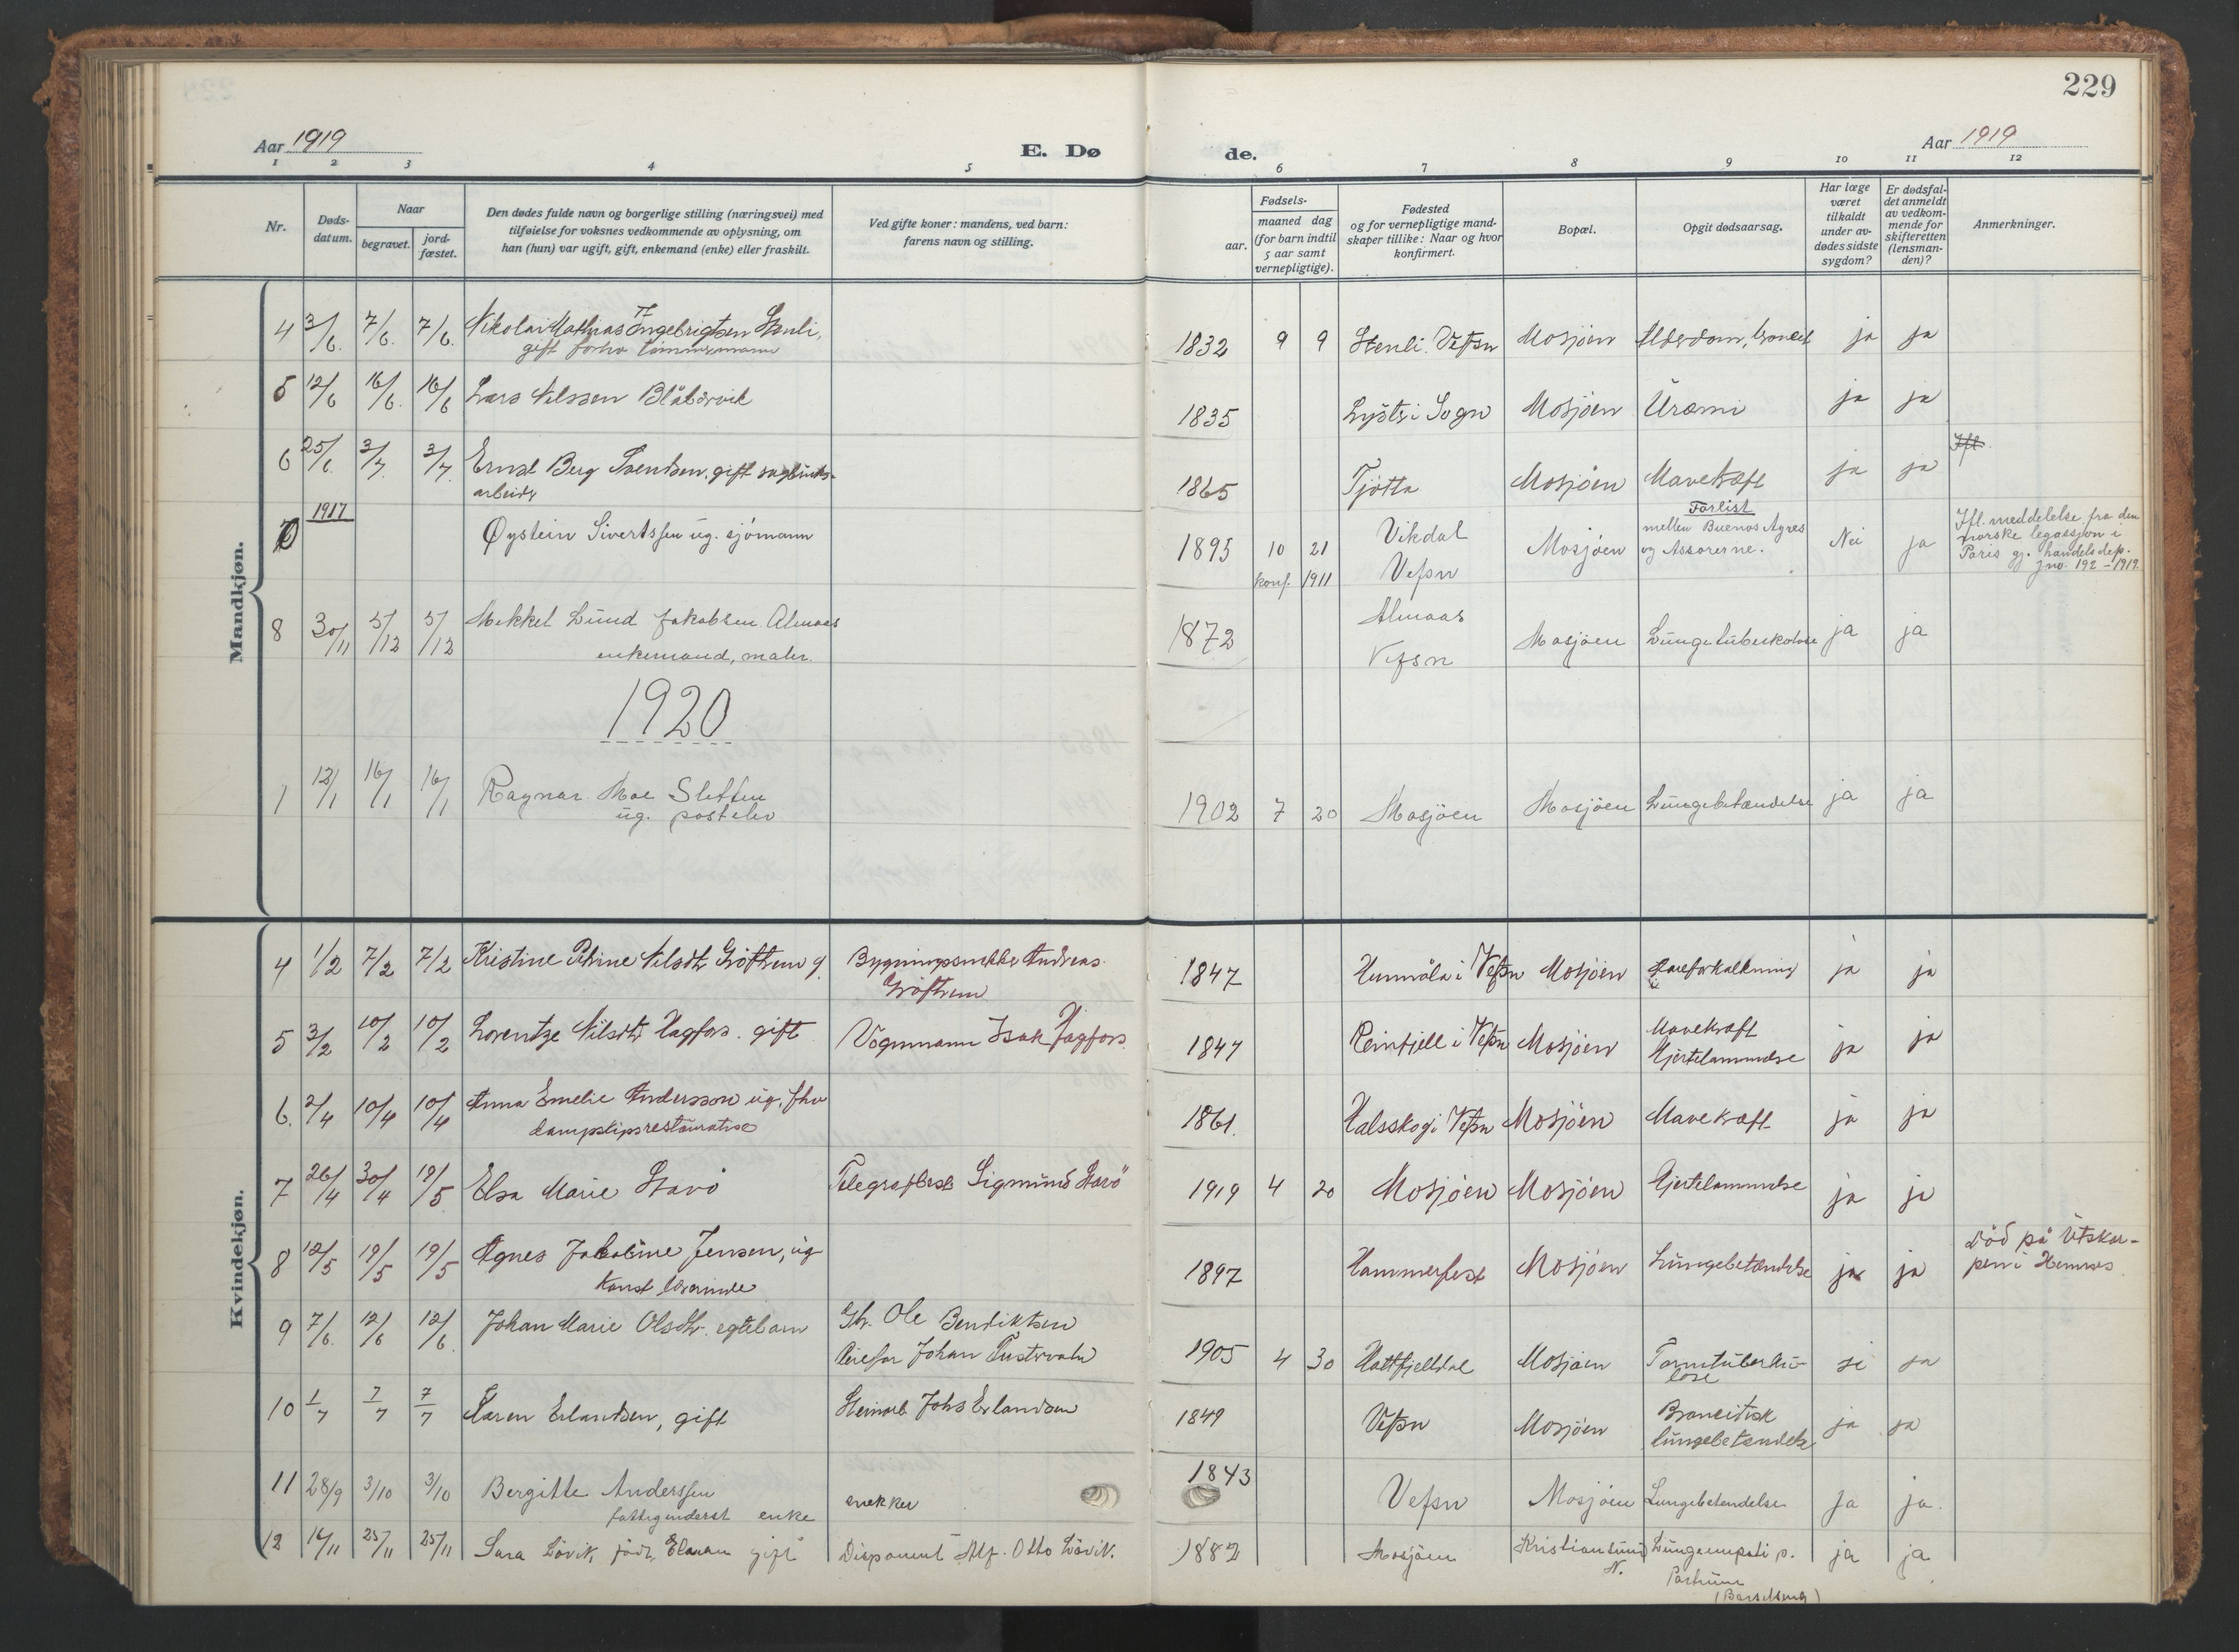 229
Aar 1919
E. Dø
de.
Aar 1919
1 2 3 4 5 6 7 8 9 10 11 12
Nr.
Døds-
datum.
Naar
begravet.
jord-
fæstet.
Den dødes fulde navn og borgerlige stilling (næringsvei) med
tilføielse for voksnes vedkommende av oplysning, om
han (hun) var ugift, gift, enkemand (enke) eller fraskilt.
Ved gifte koner: mandens, ved barn:
farens navn og stilling.
Fødsels-
aar.
maaned dag
(for barn indtil
5 aar samt
vernepligtige).
Fødested
og for vernepligtige mand-
skaper tillike: Naar og hvor
konfirmert.
Bopæl.
Opgit dødsaarsag.
Har læge
været
tilkaldt
under av-
dødes sidste
sygdom?
Er dødsfal-
det anmeldt
av vedkom-
mende for
skifteretten
(lensman-
den)?
Anmerkninger.
Mandkjøn.
4 3/6. 7/6. 7/6. Nikolai Mathias Ingebrigtsen Stenli,
gift forhv tømmermann
1832 9 9 Stenli. Vefsn Mosjöen Alderdom, ja ja
5 12/6 16/6. 16/6 Lars Nilssen Blåbærvik
1835 Lyster i Sogn Mosjöen Uræmi ja ja
6 25/6. 3/7. 3/7. Ernst Berg Svendsen, gift sagbruks-
arbeider
1865 Tjötta Mosjöen Mavekræft ja ja Ifl.
7 1917 Øystein Sivertssen ug. sjömann
1895 10 21 Vikdal Mosjöen Forlist
mellem Buenos Ayres
og Assorerne. Nei ja
konf. 1911 Vefsn
Ifl. meddelelse fra den
norske legassjon i
Paris gj. handelsdep.
jno. 192 - 1919
8 30/11 5/12 5/12 Mekkel Lund Jakobsen Almaas
enkemand, maler.
1872 Almaas
Vefsn Mosjöen Lungetuberkulose ja ja
1920
1 12/1 16/1 16/1 Ragnar Moe Sletten
ug. postelev
1902 7 20 Mosjöen Mosjöen Lungebetændelse ja ja
Kvindekjøn.
4 1/2 7/2 7/2 Kristine Petrine Nilsdtr Gröftrem g. Bygningssnekker Andreas
Gröftrem
1847 Hunnåla i Vefsn Mosjöen Åreforkalkning ja ja
5 3/2 10/2 10/2 Lorentze Nilsdtr Hagfors. gift Vognmann Isak Hagfors.
1847 Reinfjell i Vefsn Mosjöen Mavekræft
Hjertelammelse ja ja
6. 2/4 10/4 10/4 Anna Emelie Anderssen ug. fhv
dampskipsrestauratrise
1861. Halsskog i Vefsn Mosjöen Mavekræft ja ja
7 26/4 30/4 19/5 Elsa Marie Stavö Telegrafbest. Sigmund Stavö
1919 4 20 Mosjöen Mosjöen Hjertelammelse ja ja
8 12/5 19/5 19/5 Agnes Jakobine Jensen, ug
konst lærerinde
1897 Hammerfest Mosjöen Lungebetændelse ja ja Död på Utskar-
pen i Hemnes
9 7/6. 12/6 12/6. Johan Marie Olsdtr. egtebarn Gbr. Ole Bendiktsen
Pleiefar Johan Tustervatn
1905 4 30 Hattfjelldal Mosjöen Tarmtuberku-
lose ja ja
10 1/7 7/7 7/7 Karen Erlandsen, gift Steinarb Johs Erlandsen
1849 Vefsn Mosjöen Broncitisk
lungebetændelse ja ja
11 28/9 3/10 3/10 Bergitte Anderssen
fattigunderst enke snekker
1843 Vefsn Mosjöen Lungebetendelse ja ja.
12 14/11 25/11 25/11 Sara Lövik, född gift Disponent Alf. Otto Lövik.
1882 Mosjöen Kristiansund
N. p.
Partum
(Barselseng) ja ja